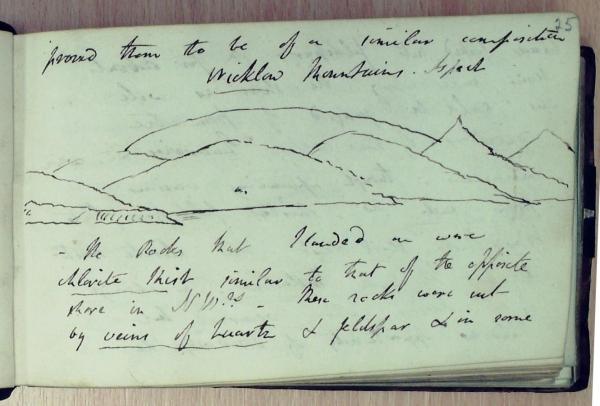 25
proved them to be of a similar composition
Wicklow Mountains. Aspect
- The Rocks that I landed on were
chlorite shist similar to that of the opposite
shore in - These rocks were cut
by veins of Quartz & feldspar & in some